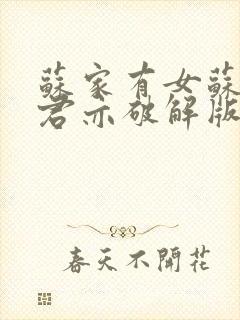 蘇家有女蘇
君亦破解版
春天不開花